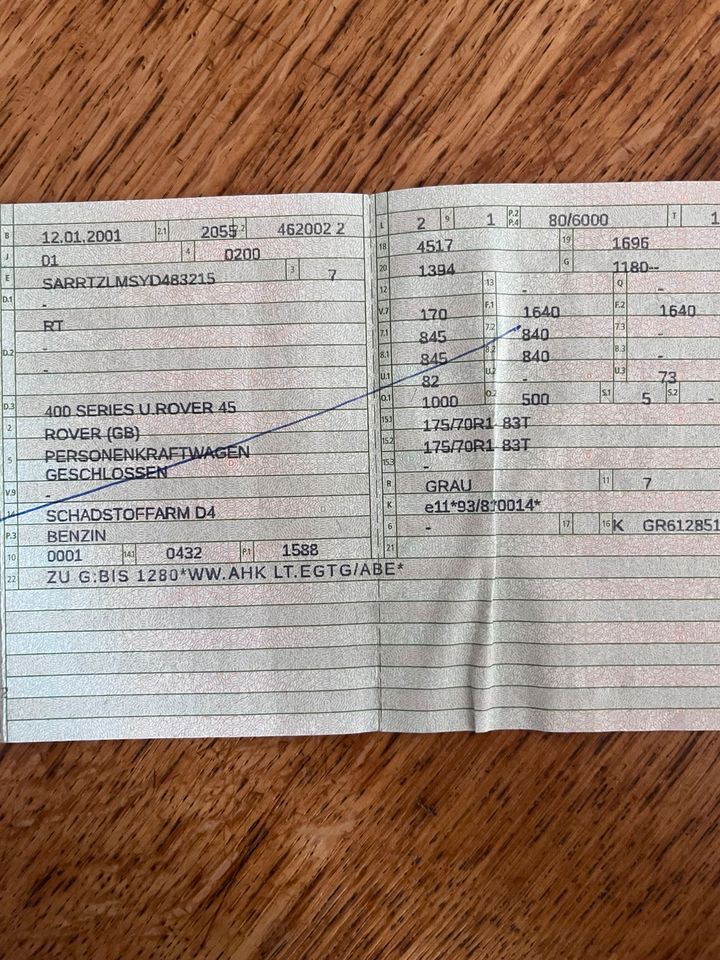 B 12.01.2001 2.1 2055 2.2 462002 2
J 01 4 0200
E SARRTZLMSYD483215 3 7
D.1 -
RT
D.2 -
-
D.3 400 SERIES U.ROVER 45
2 ROVER (GB)
5 PERSONENKRAFTWAGEN
GESCHLOSSEN
V.9 -
14 SCHADSTOFFARM D4
P.3 BENZIN
10 0001 14.1 0432 P.1 1588
22 ZU G:BIS 1280*WW.AHK LT.EGTG/ABE*
L 2 9 1 P.2 P.4 80/6000 T 1
18 4517 19 1696
20 1394 G 1180--
12 13 - Q -
V.7 170 F.1 1640 F.2 1640
7.1 845 7.2 840 7.3 -
8.1 845 8.2 840 8.3 -
U.1 82 U.2 - U.3 73
O.1 1000 O.2 500 S.1 5 S.2 -
15.1 175/70R1 83T
15.2 175/70R1 83T
15.3 -
R GRAU 11 7
K e11*93/8*0014*
6 - 17 16 K GR612851
21